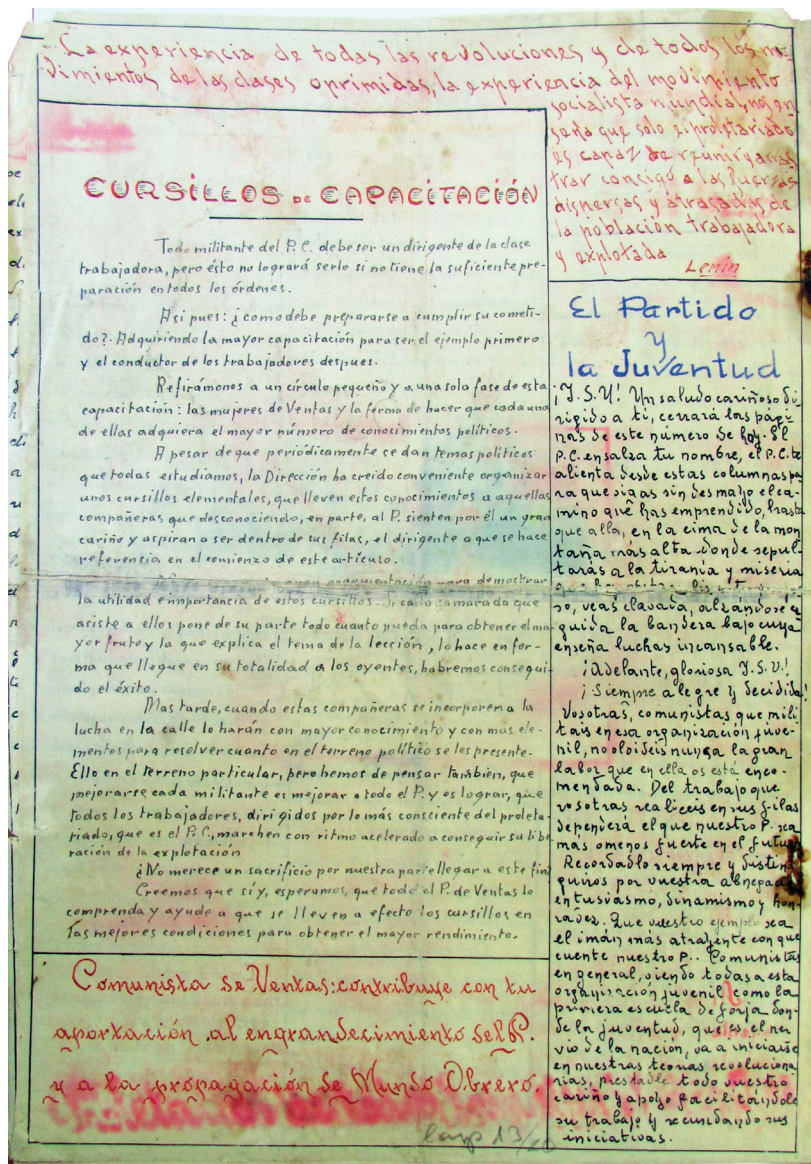 La experiencia de todas las revoluciones y de todos los mo-
vimientos de las clases oprimidas, la experiencia del movimiento
socialista mundial, nos en
seña que solo el proletariado
es capaz de reunir y arras
trar consigo a las fuerzas
dispersas y atrasadas de
la población trabajadora
y explotada
Lenin
CURSILLOS DE CAPACITACIÓN
Todo militante del P.C. debe ser un dirigente de la clase
trabajadora, pero ésto no logrará serlo si no tiene la suficiente pre-
paración en todos los órdenes.
Asi pues: ¿como debe prepararse a cumplir su cometi-
do?. Adquiriendo la mayor capacitación para ser el ejemplo primero
y el conductor de los trabajadores despues.
Refirámonos a un círculo pequeño y a una sola fase de esta
capacitación: las mujeres de Ventas y la forma de hacer que cada una
de ellas adquiera el mayor número de conocimientos políticos.
A pesar de que periódicamente se dan temas políticos
que todas estudiamos, la Dirección ha creido conveniente organizar
unos cursillos elementales, que lleven estos conocimientos a aquellas
compañeras que desconociendo, en parte, al P. sienten por él un gran
cariño y aspiran a ser dentro de sus filas, el dirigente a que se hace
referencia en el comienzo de este artículo.
argumentación para demostrar
la utilidad e importancia de estos cursillos. Si cada camarada que
asiste a ellos pone de su parte todo cuanto pueda para obtener el ma
yor fruto y la que explica el tema de la lección, lo hace en for-
ma que llegue en su totalidad a los oyentes, habremos consegui-
do el éxito.
Mas tarde, cuando estas compañeras se incorporen a la
lucha en la calle lo harán con mayor conocimiento y con mas ele-
mentos para resolver cuanto en el terreno político se les presente.
Ello en el terreno particular, pero hemos de pensar también, que
mejorarse cada militante es mejorar a todo el P. y es lograr, que
todos los trabajadores, dirigidos por lo más consciente del proleta-
riado, que es el P.C., marchen con ritmo acelerado a conseguir su libe
ración de la explotación
¿No merece un sacrificio por nuestra parte llegar a este fin?
Creemos que sí y, esperamos, que todo el P. de Ventas lo
comprenda y ayude a que se lleven a efecto los cursillos en
las mejores condiciones para obtener el mayor rendimiento.
Comunista de Ventas: contribuye con tu
aportación al engrandecimiento del P.
y a la propagación de Mundo Obrero.
El Partido
y
la Juventud
¡J.S.U! Un saludo cariñoso di
rigido a ti, cerrará las pági
nas de este número de hoy. El
P.C. ensalza tu nombre, el P.C. te
alienta desde estas columnas pa
ra que sigas sin desmayo el ca-
mino que has emprendido, hasta
que alla, en la cima de la mon
taña más alta donde sepul-
taras a la tirania y miseria
so, veas clavada, alzándose er
guida la bandera bajo cuya
enseña luchas incansable.
¡Adelante, gloriosa J.S.U.!
¡Siempre alegre y decidida!
Vosotras, comunistas que mili
tais en esa organización juve-
nil, no olvideis nunca la gran
labor que en ella os está enco-
mendada. Del trabajo que
vosotras realiceis en sus filas
dependerá el que nuestro P. sea
más o menos fuerte en el futuro
Recordadlo siempre y distin
guiros por vuestra abnegación
entusiasmo, dinamismo y hon
radez. Que vuestro ejemplo sea
el imán más atrayente con que
cuente nuestro P.. Comunistas
en general, viendo todas a esta
organización juvenil como la
primera escuela de forja don-
de la juventud, que es el ner
vio de la nación, va a iniciarse
en nuestras teorias revoluciona
rias, prestadle todo vuestro
cariño y apoyo facilitándole
su trabajo y secundando sus
iniciativas.